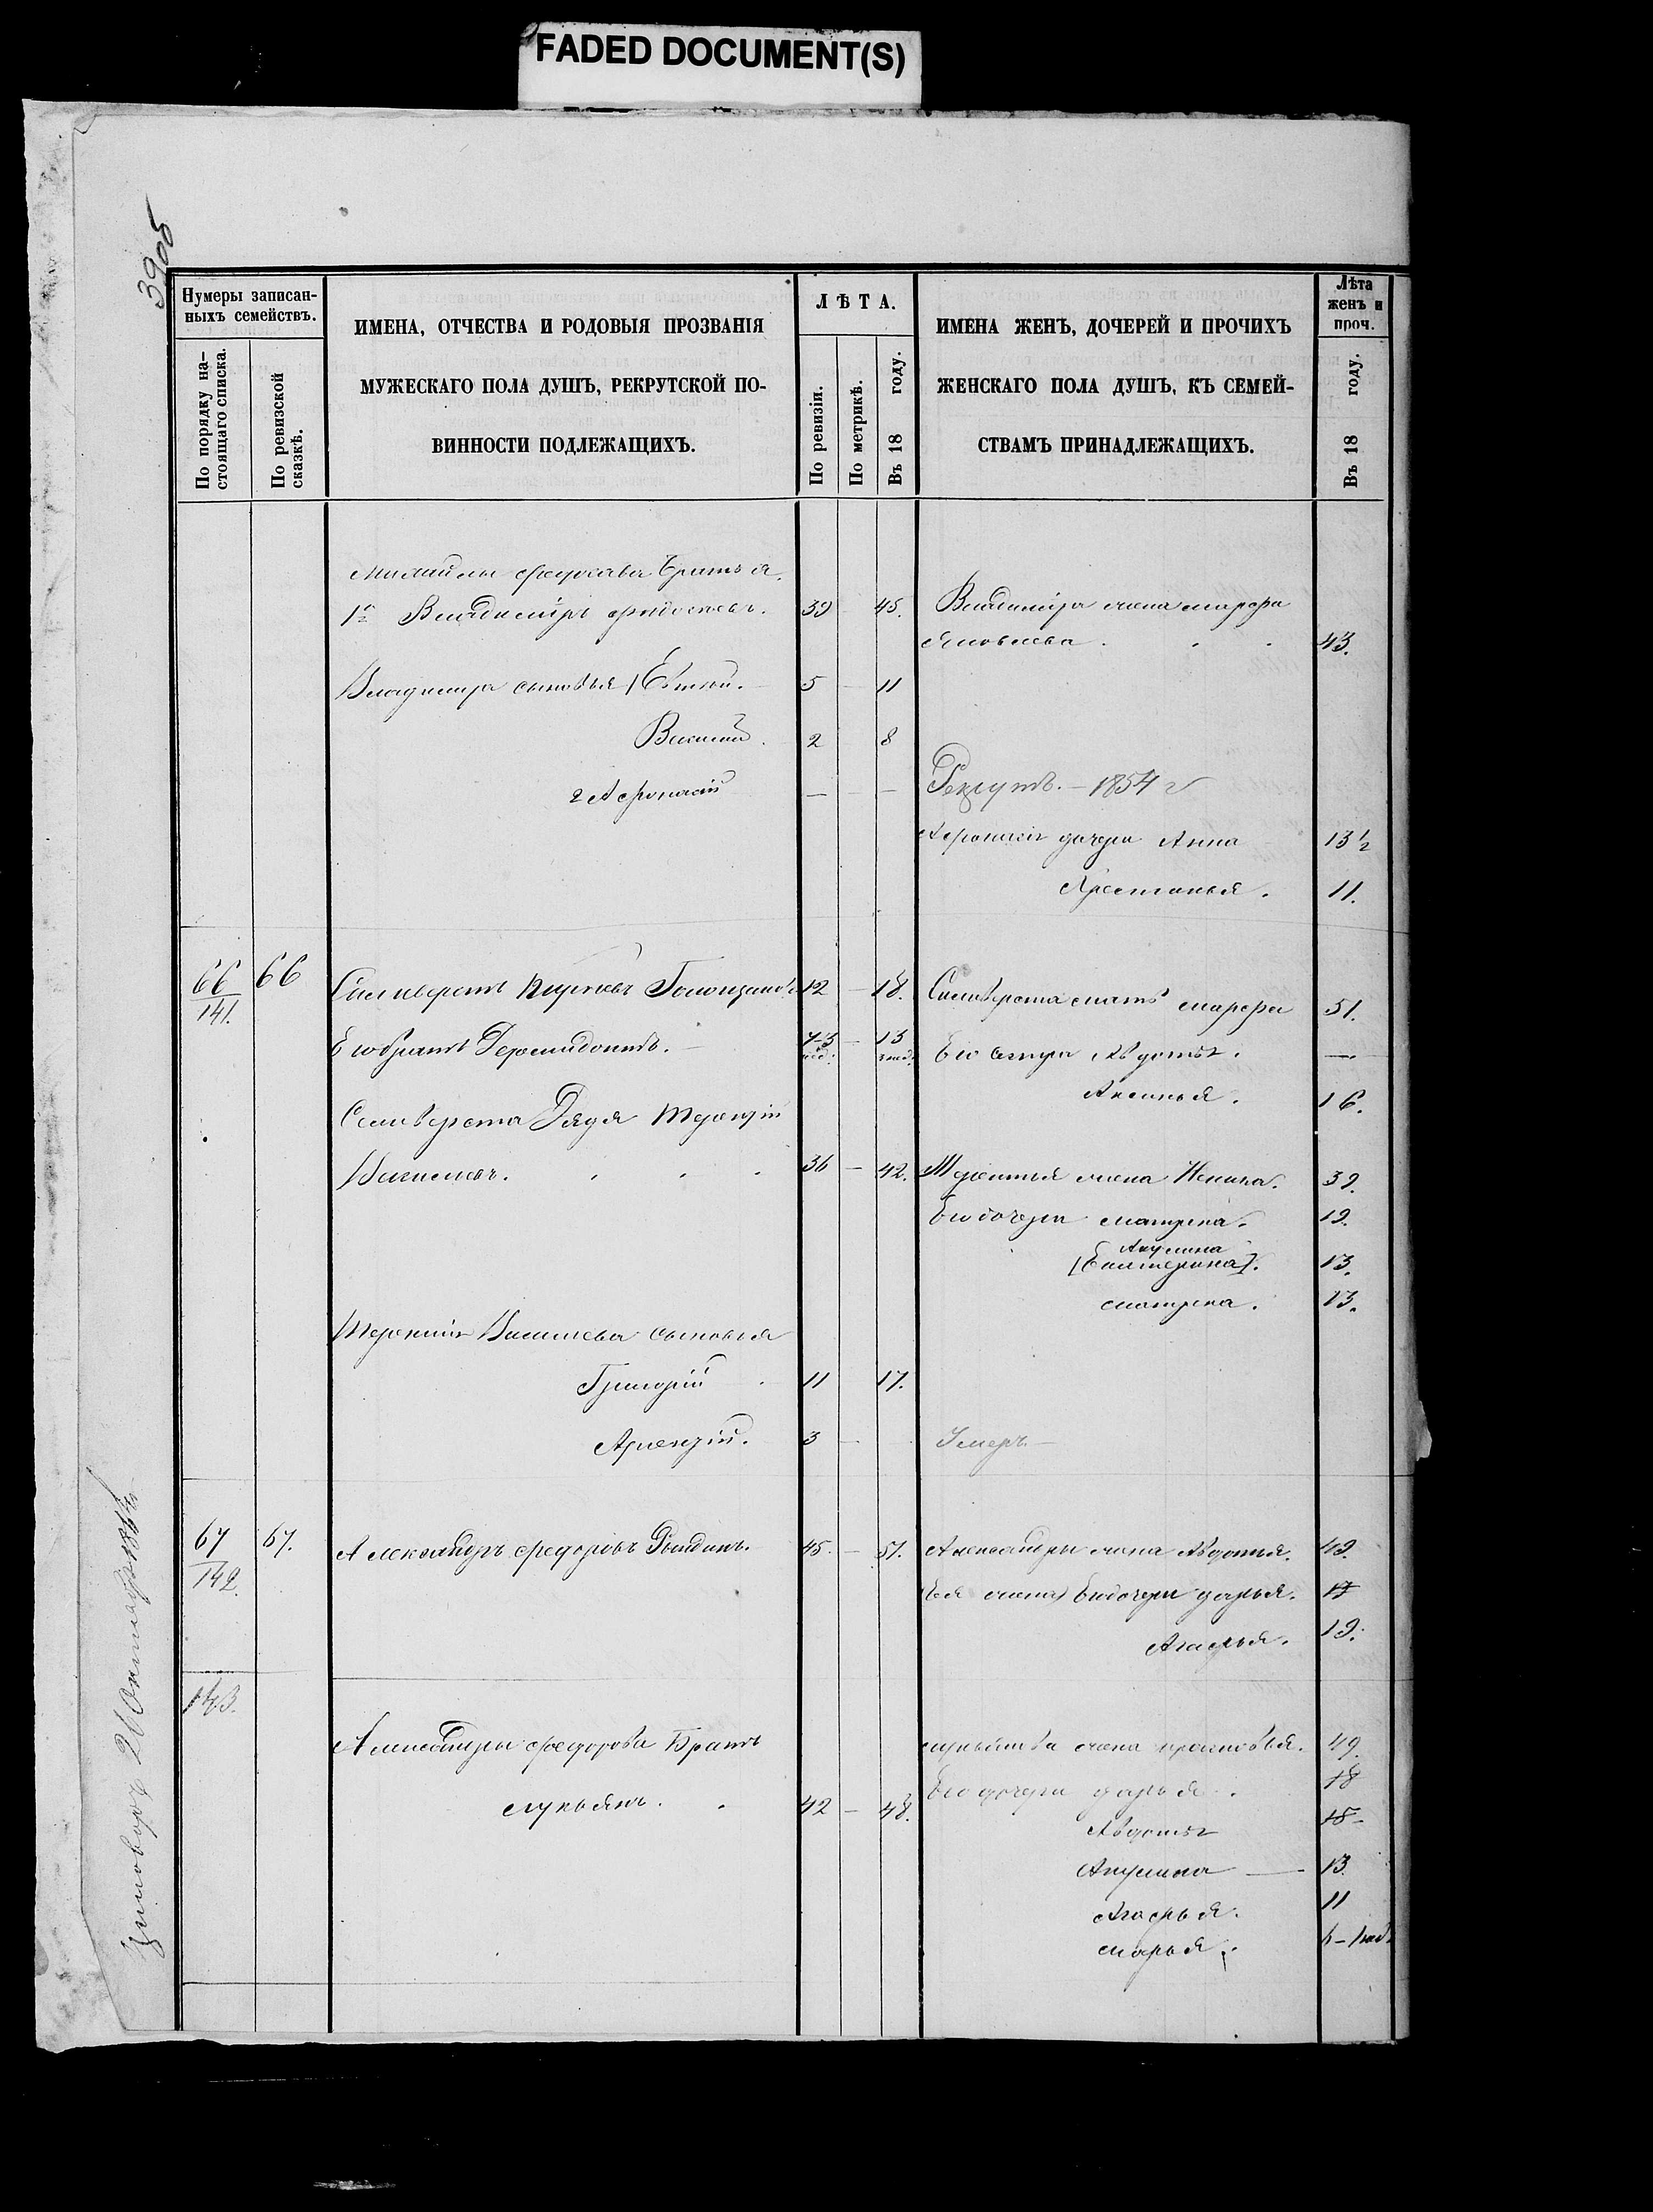 FADED DOCUMENT(S)
3905
Нумеры записан-
ныхъ семействъ.
По порядку на-
стоящаго списка.
По ревизской
сказкѣ.
ИМЕНА, ОТЧЕСТВА И РОДОВЫЯ ПРОЗВАНІЯ
МУЖЕСКАГО ПОЛА ДУШЪ, РЕКРУТСКОЙ ПО-
ВИННОСТИ ПОДЛЕЖАЩИХЪ.
ЛѢТА.
По ревизіи.
По метрикѣ.
Въ 18 году.
ИМЕНА ЖЕНЪ, ДОЧЕРЕЙ И ПРОЧИХЪ
ЖЕНСКАГО ПОЛА ДУШЪ, КЪ СЕМЕЙ-
СТВАМЪ ПРИНАДЛЕЖАЩИХЪ.
Лѣта
женъ и
проч.
Въ 18 году.
братья
1й Владиміръ 39 45. Владиміра жена Марфа
Яковлева 43.
Владимира сыновья 5 11
Василій. 2 8
2 Афонасій — — Рекрутъ. – 1854 г
Афонасія дочери Анна 13½
Хрестинья. 11.
66 66
141.
12 18. мать Марфа 51.
Его братъ 7-3 13 Его сестры Авдотья. —
Аксинья. 16.
Дядя Терентій
Васильевъ. 36 — 42. Терентья жена 39.
Его дочери Матрена. 19.
Акулина
[Екатерина]. 13.
Матрена. 13.
Терентія Васильева сыновья
Григорій 11 17.
Арсентій. 3 — Умеръ —
67 67.
142.
Александръ Федоровъ 45. — 51. Александры жена Авдотья. 49.
Его дочери Дарья. 17
Агафья. 19.
143.
Александры Федорова Братъ
Лукьянъ. 42 — 48.
Лукьяна жена Прасковья. 49.
Его дочери Дарья. 18
Авдотья 15
Акулина — 13.
Агафья. 11
Марья.
26 Октября 1864